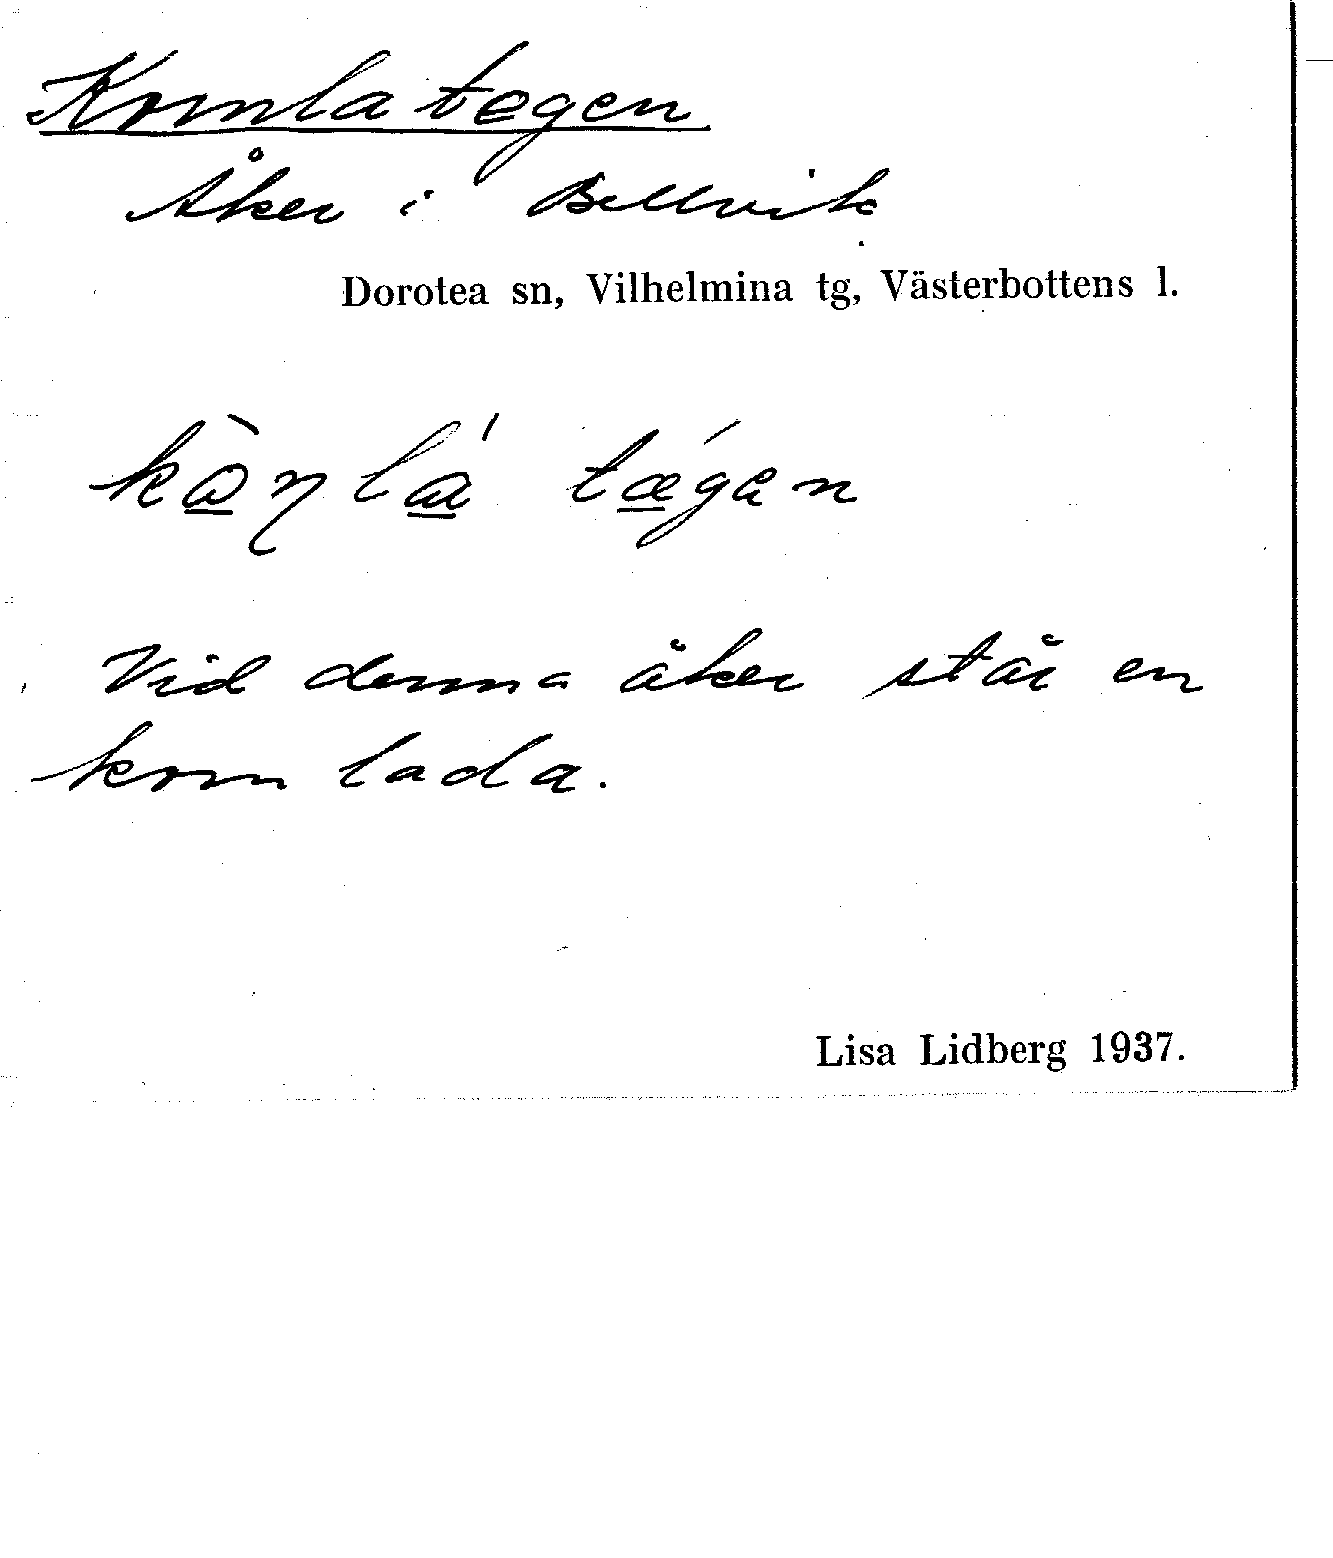 Kornlategen
Åker i Bellvik
Dorotea sn, Vilhelmina tg, Västerbottens l.
kɷ̀ɳlá tǽgen
Vid denna åker står en
kornlada.
Lisa Lidberg 1937.